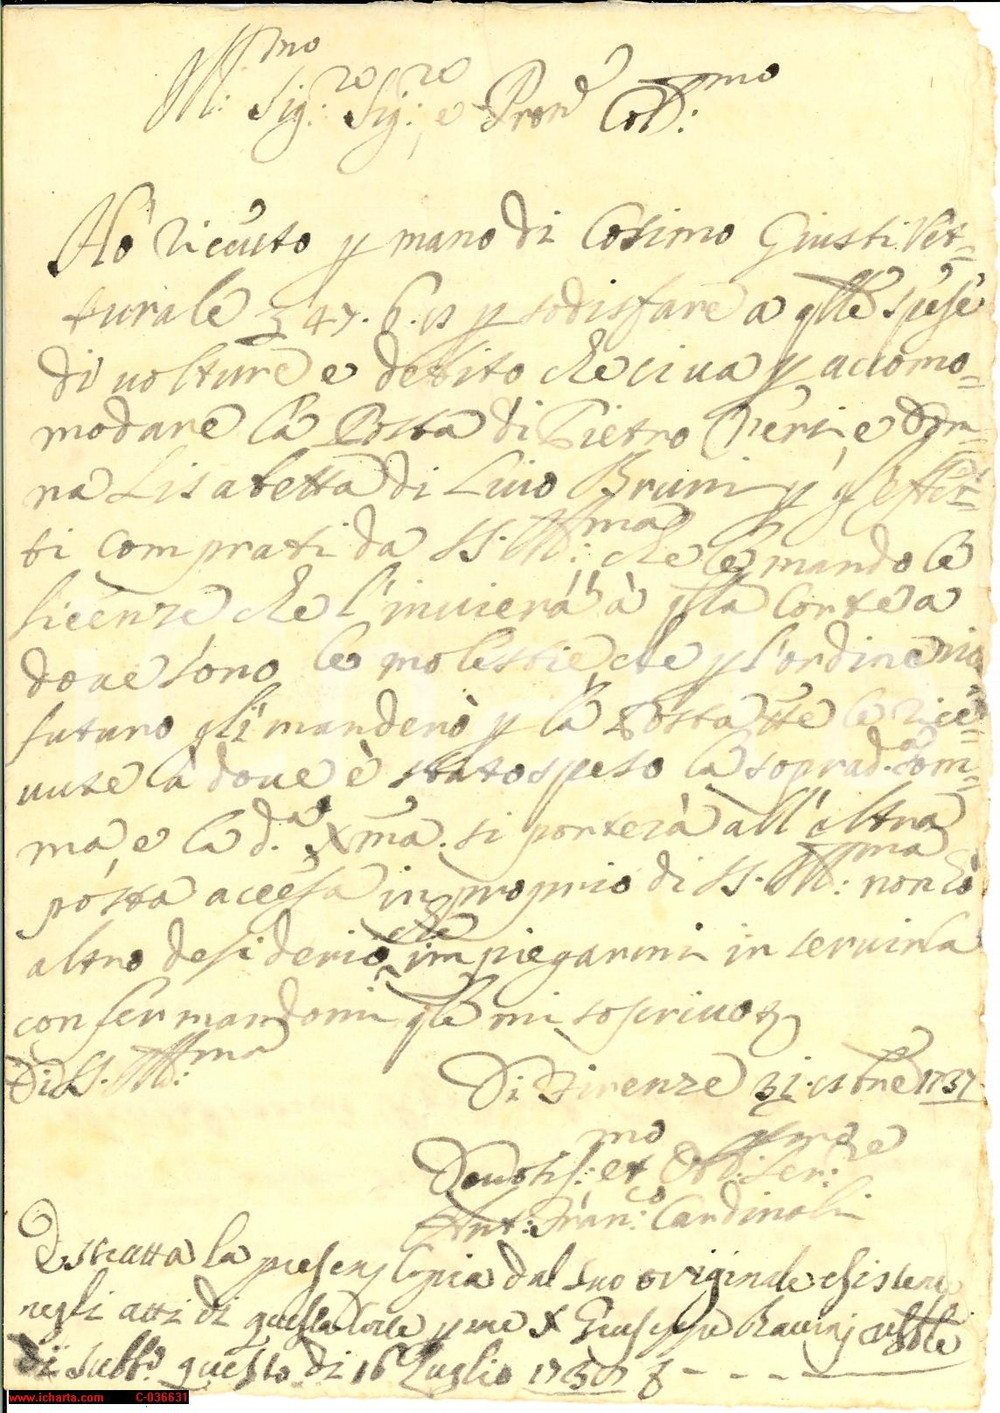 Ill: mo Sig:re Sig:re e Pron Col:mo
Hò riceuto p mano di Cosimo Giusti Vet=
turale 47. 6. p sodisfare a qlle spese
di uolture e debito che ci ua p accomo=
modare la Posta di Pietro e Don=
na Lisabetta di Liuio Bruni p gl'effet=
ti comprati da SS. Ill:ma che le mando le
licenze che l'inuierà à qlla Corte a
doue sono le molestie, che p l'ordinario
futuro gli manderò p la Posta tte le rice=
uute là doue è stato speso la soprad.a som=
ma, e la d.a si porterà all'altra
posta accesa in proprio di SS. Ill:ma non hò
altro desiderio che impiegarmi in seruirla
confermandomi qle mi soscriuo
Di SS. Ill:ma
Di Firenze 31. 1737.
Deuotis:mo et Obl:mo Ser:re
Ant: Fran:co Cardinali
Estratta la presen Copia dal suo originale esistente
negli atti di questa Corte p me Giuseppe
di questo di 16 Luglio
www.icharta.com C-036631